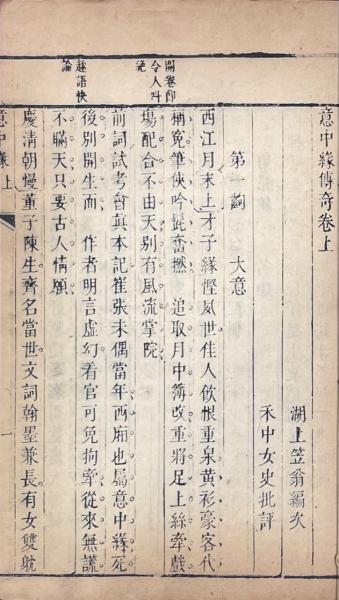 意中緣傳奇卷上
湖上笠翁編次
禾中女史批評
第一齣 大意
西江月末上才子緣慳夙世佳人飲恨重泉黃衫豪客代
開卷即
令人叫
絕
稱冤筆俠吟髭奮撚 追取月中簿改重將足上絲牽戲
場配合不由天别有風流掌院
前詞試考會真本記崔張未偶當年西廂也屬意中緣死
趣語快
論
後别開生面 作者明言虛幻看官可免拘牽從來無謊
不瞞天只要古人情願
慶清朝慢董子陳生齊名當世文詞翰墨兼長有女雙躭
意中緣 上
一